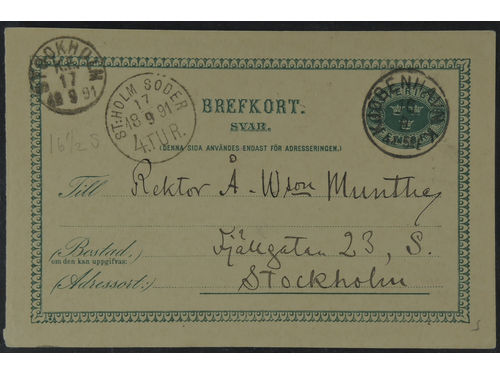 STOCKHOLM
17
18 9 91
ST:HOLM SÖDER
17
18 9 91
4.TUR.
KJØBENHAVN
BREFKORT.
SVAR.
(DENNA SIDA ANVÄNDES ENDAST FÖR ADRESSERINGEN.)
16½ S
Till Rektor Å. Wson Munthe,
Fjällgatan 23, S.
(Bostad.
om den kan uppgifvas:
Adressort:) Stockholm